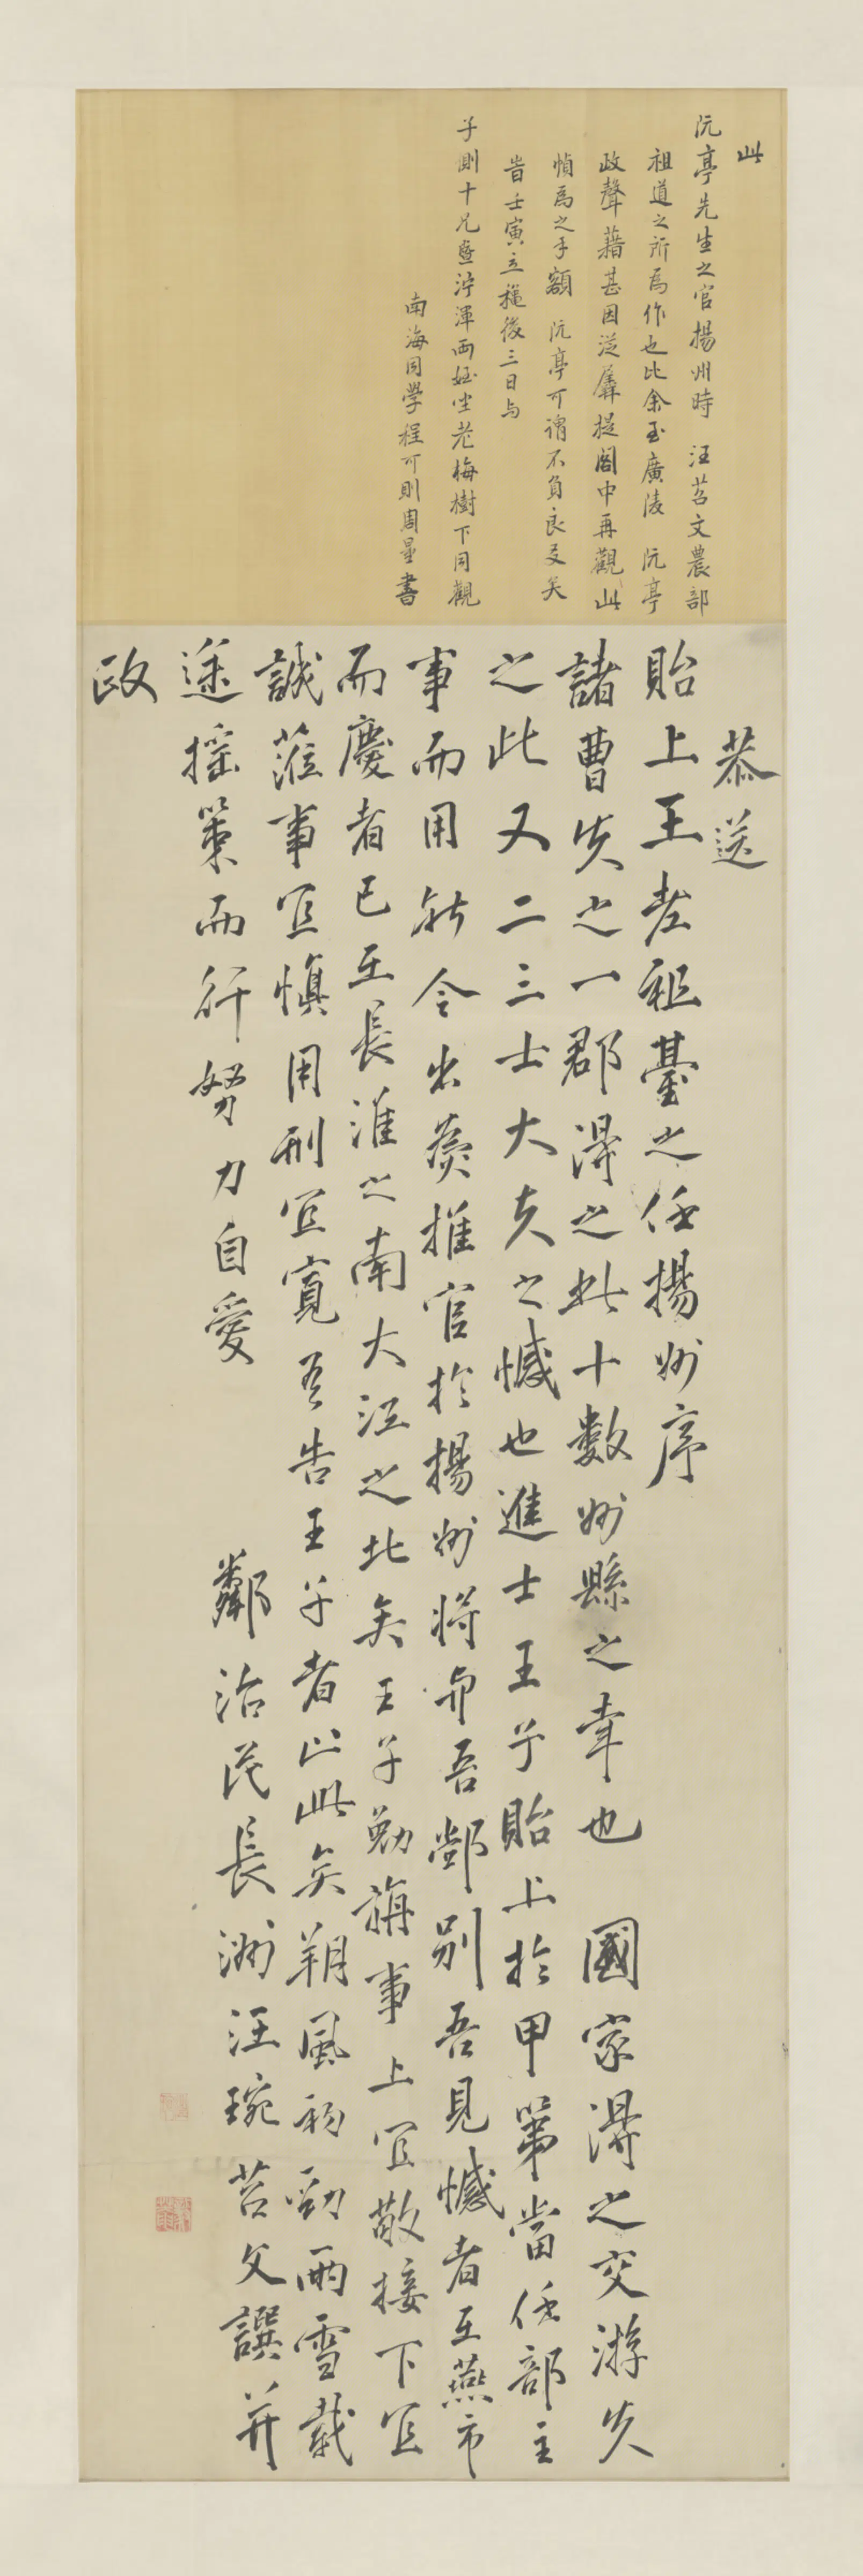 此
阮亭先生之官揚州時 汪苕文農部
祖道之所為作也比余至廣陵 阮亭
政聲藉甚因從犀提閣中再觀此
幀為之手額 阮亭可謂不負良友矣
旹壬寅立穐後三日与
子側十兄暨泞渾兩姪坐老梅樹下同觀
南海同學程可則周量書
恭送
貽上王老祖臺之任揚州序
諸曹失之一郡得之此十數州縣之幸也 國家得之交游失
之此又二三士大夫之憾也進士王子貽上於甲第當任部主
事而用新令出爲推官於揚州將與吾鄰別吾見憾者在燕市
而慶者已在長淮之南大江之北矣王子勉旃事上宜敬接下宜
誠蒞事宜慎用刑宜寬吾告王子者止此矣朔風初勁雨雪載
途搖策而行努力自愛 鄰治民長洲汪琬苕文譔并
政